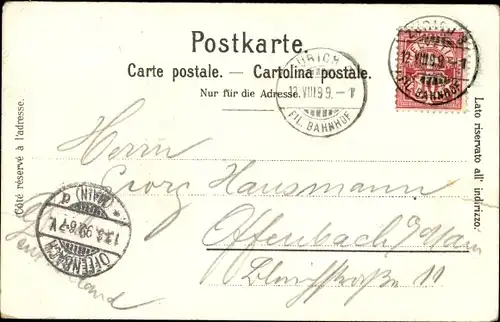 Postkarte.
Carte postale. — Cartolina postale.
Nur für die Adresse.
Côté réservé à l'adresse.
Lato riservato all' indirizzo.
ZÜRICH
12.VIII.99.–
FIL. BAHNHOF
12.VIII.99.–
FIL. BAHNHOF
Herrn
Georg Hausmann
Offenbach a/Main
11
Deutschland
OFFENBACH
(MAIN)
13.8.99.6-7V.